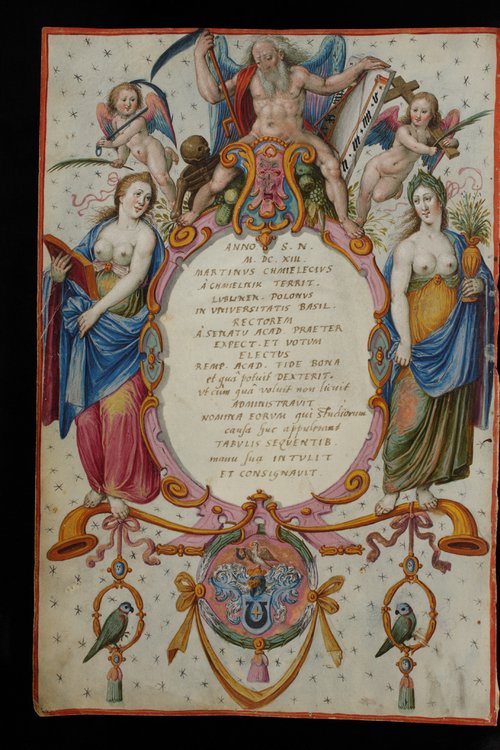 ANNO S. N.
M. DC. XIII.
MARTINUS CHMIELECIUS
Â CHMIELNIK TERRIT.
LUBLINEN. POLONUS
IN UNIVERSITATIS BASIL.
RECTOREM
Â SENATU ACAD PRAETER
EXPECT. ET VOTUM
ELECTUS
REMP. ACAD. FIDE BONA
et quâ potuit DEXTERIT.
Vt cùm quâ voluit non licuit
ADMINISTRAVIT
NOMINA EORUM qui Studiorum
causa huc appulerunt
TABULIS SEQUENTIB.
manu sua INTULIT
ET CONSIGNAVIT.